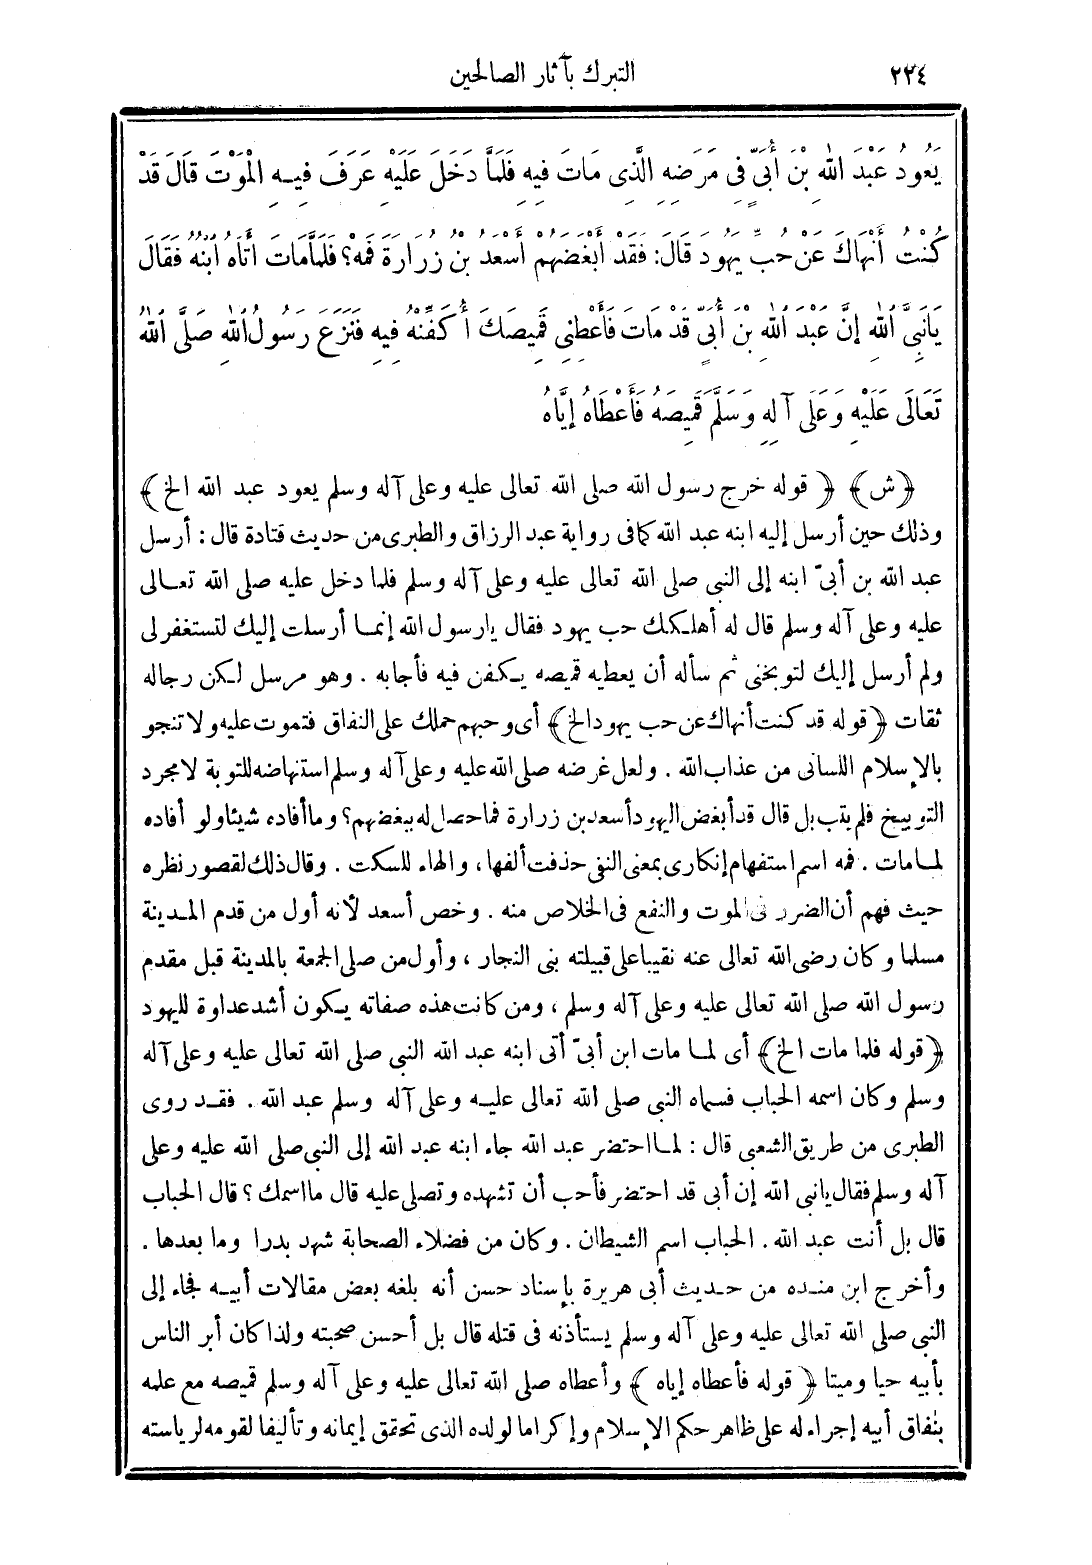 ٢٢٤ التبرك بآثار الصالحين
يَعُودُ عَبْدَ اللهِ بْنَ أُبَيٍّ فِى مَرَضِهِ الَّذِى مَاتَ فِيهِ فَلَمَّا دَخَلَ عَلَيْهِ عَرَفَ فِيـهِ الْمَوْتَ قَالَ قَدْ
كُنْتُ أَنْهَاكَ عَنْ حُبِّ يَهُودَ قَالَ: فَقَدْ أَبْغَضَهُمْ أَسْعَدُ بْنُ زُرَارَةَ فَمَهْ؟ فَلَمَّا مَاتَ أَتَاهُ ابْنُهُ فَقَالَ
يَانَبِيَّ اللهِ إِنَّ عَبْدَ اللهِ بْنَ أُبَيٍّ قَدْ مَاتَ فَأَعْطِنِى قَمِيصَكَ أُكَفِّنْهُ فِيهِ فَنَزَعَ رَسُولُ اللهِ صَلَّى اللهُ
تَعَالَى عَلَيْهِ وَعَلَى آلِهِ وَسَلَّمَ قَمِيصَهُ فَأَعْطَاهُ إِيَّاهُ
﴿ش﴾ ﴿قوله خرج رسول الله صلى الله تعالى عليه وعلى آله وسلم يعود عبد الله الخ﴾
وذلك حين أرسل إليه ابنه عبد الله كما فى رواية عبد الرزاق والطبرى من حديث قتادة قال : أرسل
عبد الله بن أبىّ ابنه إلى النبى صلى الله تعالى عليه وعلى آله وسلم فلما دخل عليه صلى الله تعـالى
عليه وعلى آله وسلم قال له أهلـكك حب يهود فقال يارسول الله إنمـا أرسلت إليك لتستغفر لى
ولم أرسل إليك لتوبخنى ثم سأله أن يعطيه قميصه يـكفن فيه فأجابه . وهو مرسل لـكن رجاله
ثقات ﴿قوله قد كنت أنهاك عن حب يهود الخ﴾ أى وحبهم حملك على النفاق فتموت عليه ولا تنجو
بالإسلام اللسانى من عذاب الله . ولعل غرضه صلى الله عليه وعلى آله وسلم استنهاضه للتوبة لا مجرد
التوبيخ فلم يتب بل قال قد أبغض اليهود أسعد بن زرارة فما حصل له ببغضهم؟ وما أفاده شيئا ولو أفاده
لمـا مات . فمه اسم استفهام إنكارى بمعنى النفى حذفت ألفها ، والهاء للسكت . وقال ذلك لقصور نظره
حيث فهم أن الضرر فى الموت والنفع فى الخلاص منه . وخص أسعد لأنه أول من قدم المـدينة
مسلما وكان رضى الله تعالى عنه نقيبا على قبيلته بنى النجار ، وأول من صلى الجمعة بالمدينة قبل مقدم
رسول الله صلى الله تعالى عليه وعلى آله وسلم ، ومن كانت هذه صفاته يـكون أشد عداوة لليهود
﴿قوله فلما مات الخ﴾ أى لمـا مات ابن أبىّ أتى ابنه عبد الله النبى صلى الله تعالى عليه وعلى آله
وسلم وكان اسمه الحباب فسماه النبى صلى الله تعالى عليـه وعلى آله وسلم عبد الله . فقـد روى
الطبرى من طريق الشعبى قال : لمـا احتضر عبد الله جاء ابنه عبد الله إلى النبى صلى الله عليه وعلى
آله وسلم فقال يانبى الله إن أبى قد احتضر فأحب أن تشهده وتصلى عليه قال ما اسمك ؟ قال الحباب
قال بل أنت عبد الله . الحباب اسم الشيطان . وكان من فضلاء الصحابة شهد بدرا وما بعدها .
وأخرج ابن منـده من حـديث أبى هريرة بإسناد حسن أنه بلغه بعض مقالات أبيـه فجاء إلى
النبى صلى الله تعالى عليه وعلى آله وسلم يستأذنه فى قتله قال بل أحسن صحبته ولذا كان أبر الناس
بأبيه حيا وميتا ﴿قوله فأعطاه إياه﴾ وأعطاه صلى الله تعالى عليه وعلى آله وسلم قميصه مع علمه
بنفاق أبيه إجراء له على ظاهر حكم الإسلام وإكراما لولده الذى تحقق إيمانه وتأليفا لقومه لرياسته